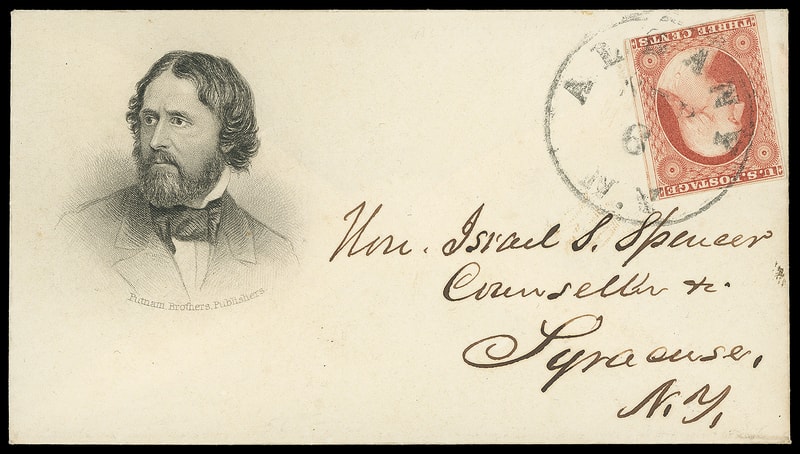 ALBANY
N.Y.
6
THREE CENTS
U.S. POSTAGE
Putnam Brothers, Publishers.
Hon. Israel S. Spencer
Counsellor &c.
Syracuse,
N.Y.